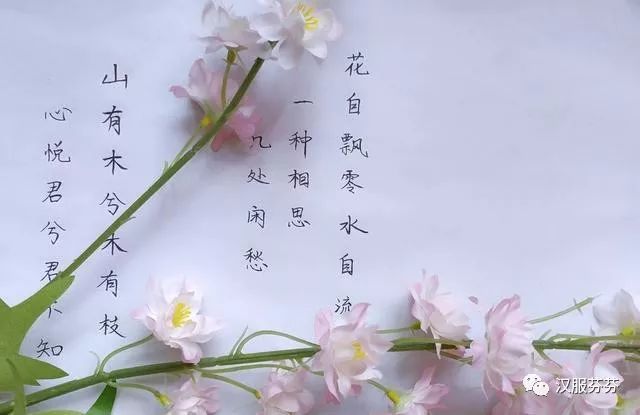 花自飘零水自流
一种相思
几处闲愁
山有木兮木有枝
心悦君兮君不知
汉服芬芬